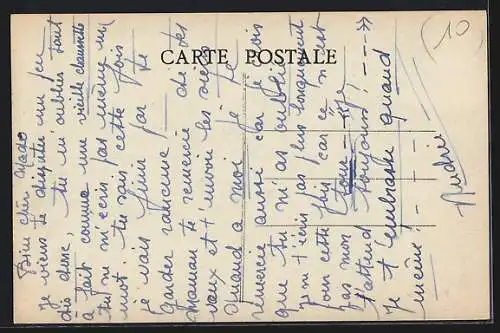 CARTE POSTALE
10
Bien cher Mado
Je viens te disputer un peu
dis donc, tu m'oublies tout
à fait comme une vieille chaussette
tu ne m'écris pas même un
mot. tu sais cette fois
je vais finir par te
garder rancune! Je dis
Maman te remercie des
vœux et t'envoie les siens
Quand à moi je te
remercie aussi car je vois
que tu m'as oubliée
je ne t'écris pas plus longuement
pour cette fois car ce n'est
pas mon tour
t'attend toujours! - - -
Je t'embrasse quand
même! - - -
Andrée